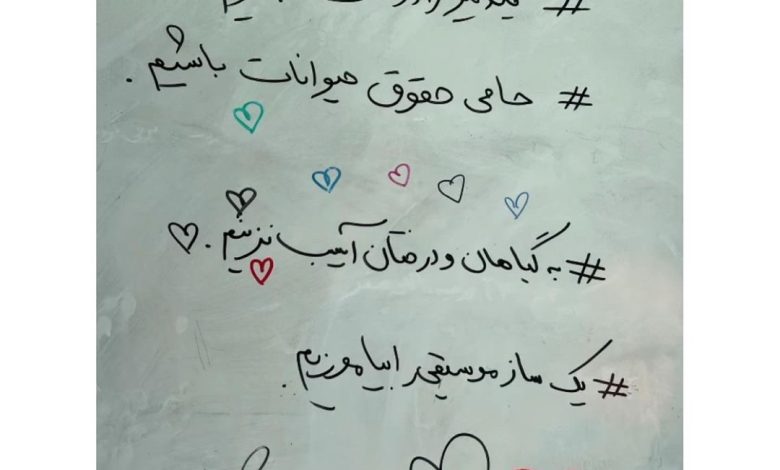 #
# حامی حقوق حیوانات باشیم .
# به گیاهان و درختان آسیب نزنیم .
# یک ساز موسیقی را بیاموزیم .